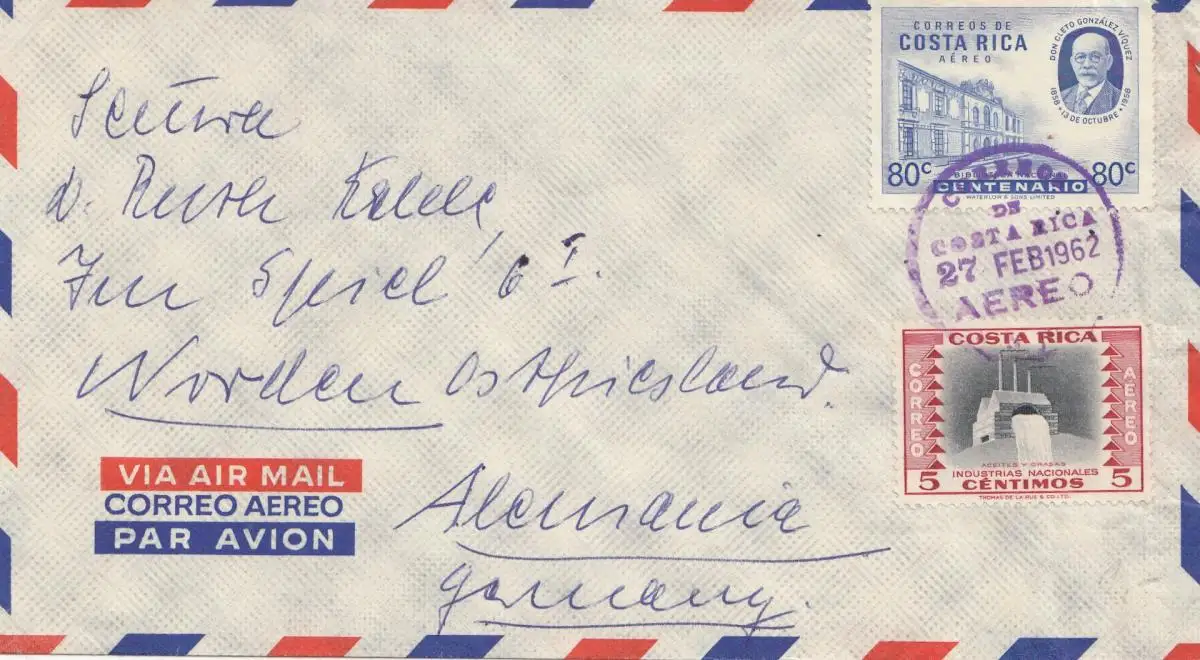 Señora
D. Ruth
Im Spiel 6 I.
Norden Ostfriesland.
Alemania
Germany.
VIA AIR MAIL
CORREO AEREO
PAR AVION
CORREOS DE
COSTA RICA
AÉREO
DON CLETO GONZÁLEZ VÍQUEZ
1858 • 13 DE OCTUBRE • 1958
80c 80c
BIBLIOTECA NACIONAL
CENTENARIO
WATERLOW & SONS LIMITED
CORREOS
DE
COSTA RICA
27 FEB 1962
AEREO
COSTA RICA
CORREO
AEREO
ACEITES Y GRASAS
INDUSTRIAS NACIONALES
5 CÉNTIMOS 5
THOMAS DE LA RUE & CO. LTD.